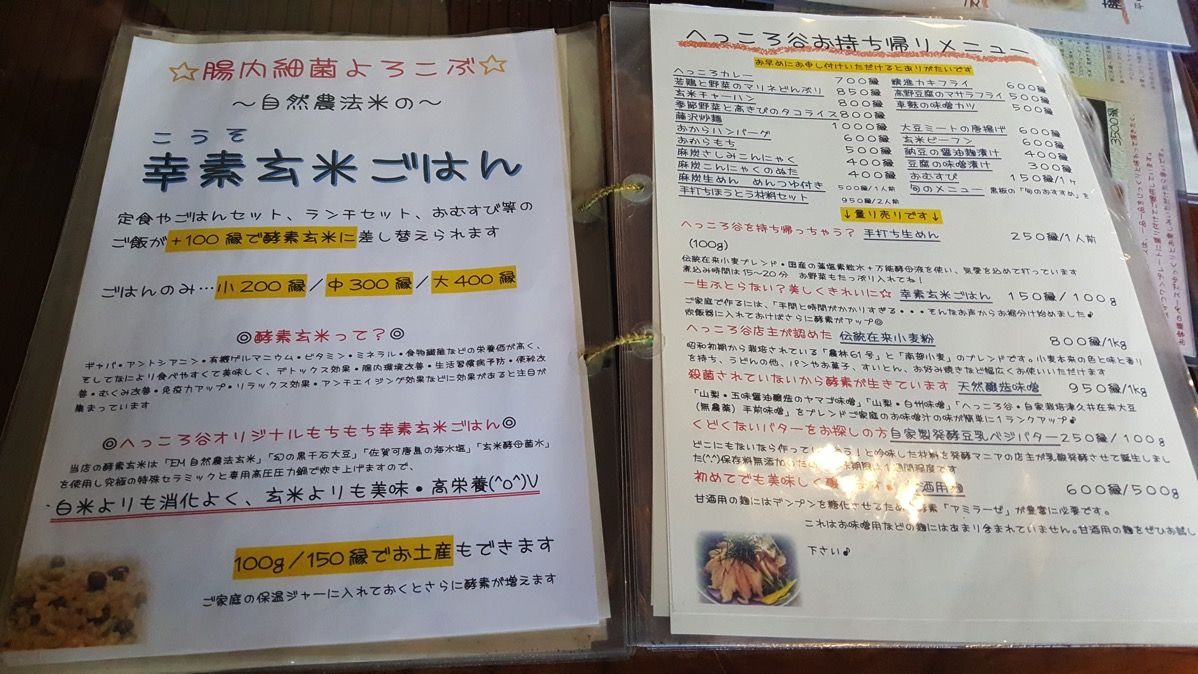 ☆腸内細菌よろこぶ☆
〜自然農法米の〜
こうそ
幸素玄米ごはん
定食やごはんセット、ランチセット、おむすび等の
ご飯が+100縁で酵素玄米に差し替えられます
ごはんのみ…小200縁/中300縁/大400縁
◎酵素玄米って?◎
ギャバ・アントシアニン・有機ゲルマニウム・ビタミン・ミネラル・食物繊維などの栄養価が高く、
をしてなにより食べやすくて美味しく、デトックス効果・腸内環境改善・生活習慣病予防・便秘改
善・むくみ改善・免疫力アップ・リラックス効果・アンチエイジング効果などに効果があると注目が
集まっています
◎へっころ谷オリジナルもちもち幸素玄米ごはん◎
当店の酵素玄米は「EM自然農法玄米」「幻の黒千石大豆」「佐賀可唐島の海水塩」「玄米酵母菌水」
を使用し究極の特殊セラミックと専用高圧圧力鍋で炊き上げますので、
白米よりも消化よく、玄米よりも美味・高栄養(^o^)V
100g/150縁でお土産もできます
ご家庭の保温ジャーに入れておくとさらに酵素が増えます
へっころ谷お持ち帰りメニュー
お早めにお申し付けいただけるとありがたいです
へっころカレー 700縁
若鶏と野菜のマリネどんぶり 850縁
玄米チャーハン 800縁
季節野菜と高きびのタコライス 800縁
藤沢炒麺 1000縁
おからハンバーグ 600縁
おからもち 500縁
麻炭さしみこんにゃく 400縁
麻炭こんにゃくのぬた 400縁
麻炭生めん めんつゆ付き 500縁/1人前
手打ちほうとう材料セット 950縁/2人前
精進カキフライ 600縁
高野豆腐のマサラフライ 500縁
車麩の味噌カツ 500縁
大豆ミートの唐揚げ 600縁
玄米ビーフン 600縁
納豆の醤油麹漬け 400縁
豆腐の味噌漬け 300縁
おむすび 150縁/1ヶ
旬のメニュー 黒板の「旬のおすすめ」を
↓量り売りです↓
へっころ谷を持ち帰っちゃう? 手打ち生めん 250縁/1人前
(100g)
伝統在来小麦ブレンド・国産の藻塩素粧水+万能酵母液を使い、気愛を込めて打っています
煮込み時間は15〜20分 お野菜もたっぷり入れてね!
一生ふとらない?美しくきれいに☆ 幸素玄米ごはん 150縁/100g
ご家庭で作るには、「手間と時間がかかりすぎる・・・そんなお声からお裾分け始めました♪
炊飯器に入れておけばさらに酵素がアップ◎
へっころ谷店主が認めた 伝統在来小麦粉 800縁/1kg
昭和初期から栽培されている「農林61号」と「南部小麦」のブレンドです。小麦本来の色と味と香り
を持ち、うどんの他、パンやお菓子、すいとん、お好み焼きなど幅広くお使いいただけます
殺菌されていないから酵素が生きています 天然醸造味噌 950縁/1kg
「山梨・五味醤油醸造のヤマゴ味噌」「山梨・白州味噌」「へっころ谷・自家栽培津久井在来大豆
(無農薬)手前味噌」をブレンドご家庭のお味噌汁の味が簡単に1ランクアップ♪
くどくないバターをお探しの方 自家製発酵豆乳ベジバター 250縁/100g
どこにもないなら作って 吟味した材料を発酵マニアの店主が乳酸発酵させて誕生しまし
た(^^)保存料無添加のた 味期限は1週間程度です
初めてでも美味しく 酒用麹 600縁/500g
甘酒用の麹にはデンプンを糖化させるため 素「アミラーゼ」が豊富に必要です。
これはお味噌用などの麹にはあまり含まれていません。甘酒用の麹をぜひお試し
下さい♪
3500縁